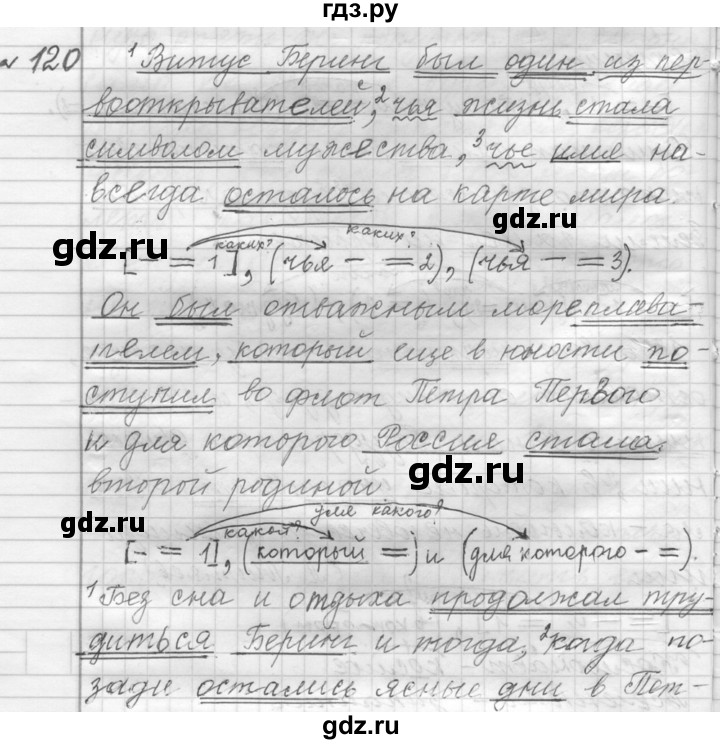 гдз.ру
№ 120 ¹Витус Беринг был один из пер-
вооткрывателей, ²чья жизнь стала
символом мужества, ³чье имя на-
всегда осталось на карте мира.
каких? каких?
[– = 1], (чья – = 2), (чья – = 3).
gdz.ru gdz.ru
Он был отважным мореплава-
телем, который еще в юности по-
ступил во флот Петра Первого
и для которого Россия стала
второй родиной
gdz.ru
gdz.ru
какой? для какого?
[– = 1], (который =) и (для которого – =).
¹Без сна и отдыха продолжал тру-
диться Беринг и тогда, ²когда по-
зади остались ясные дни в Пет-
гдз.ру